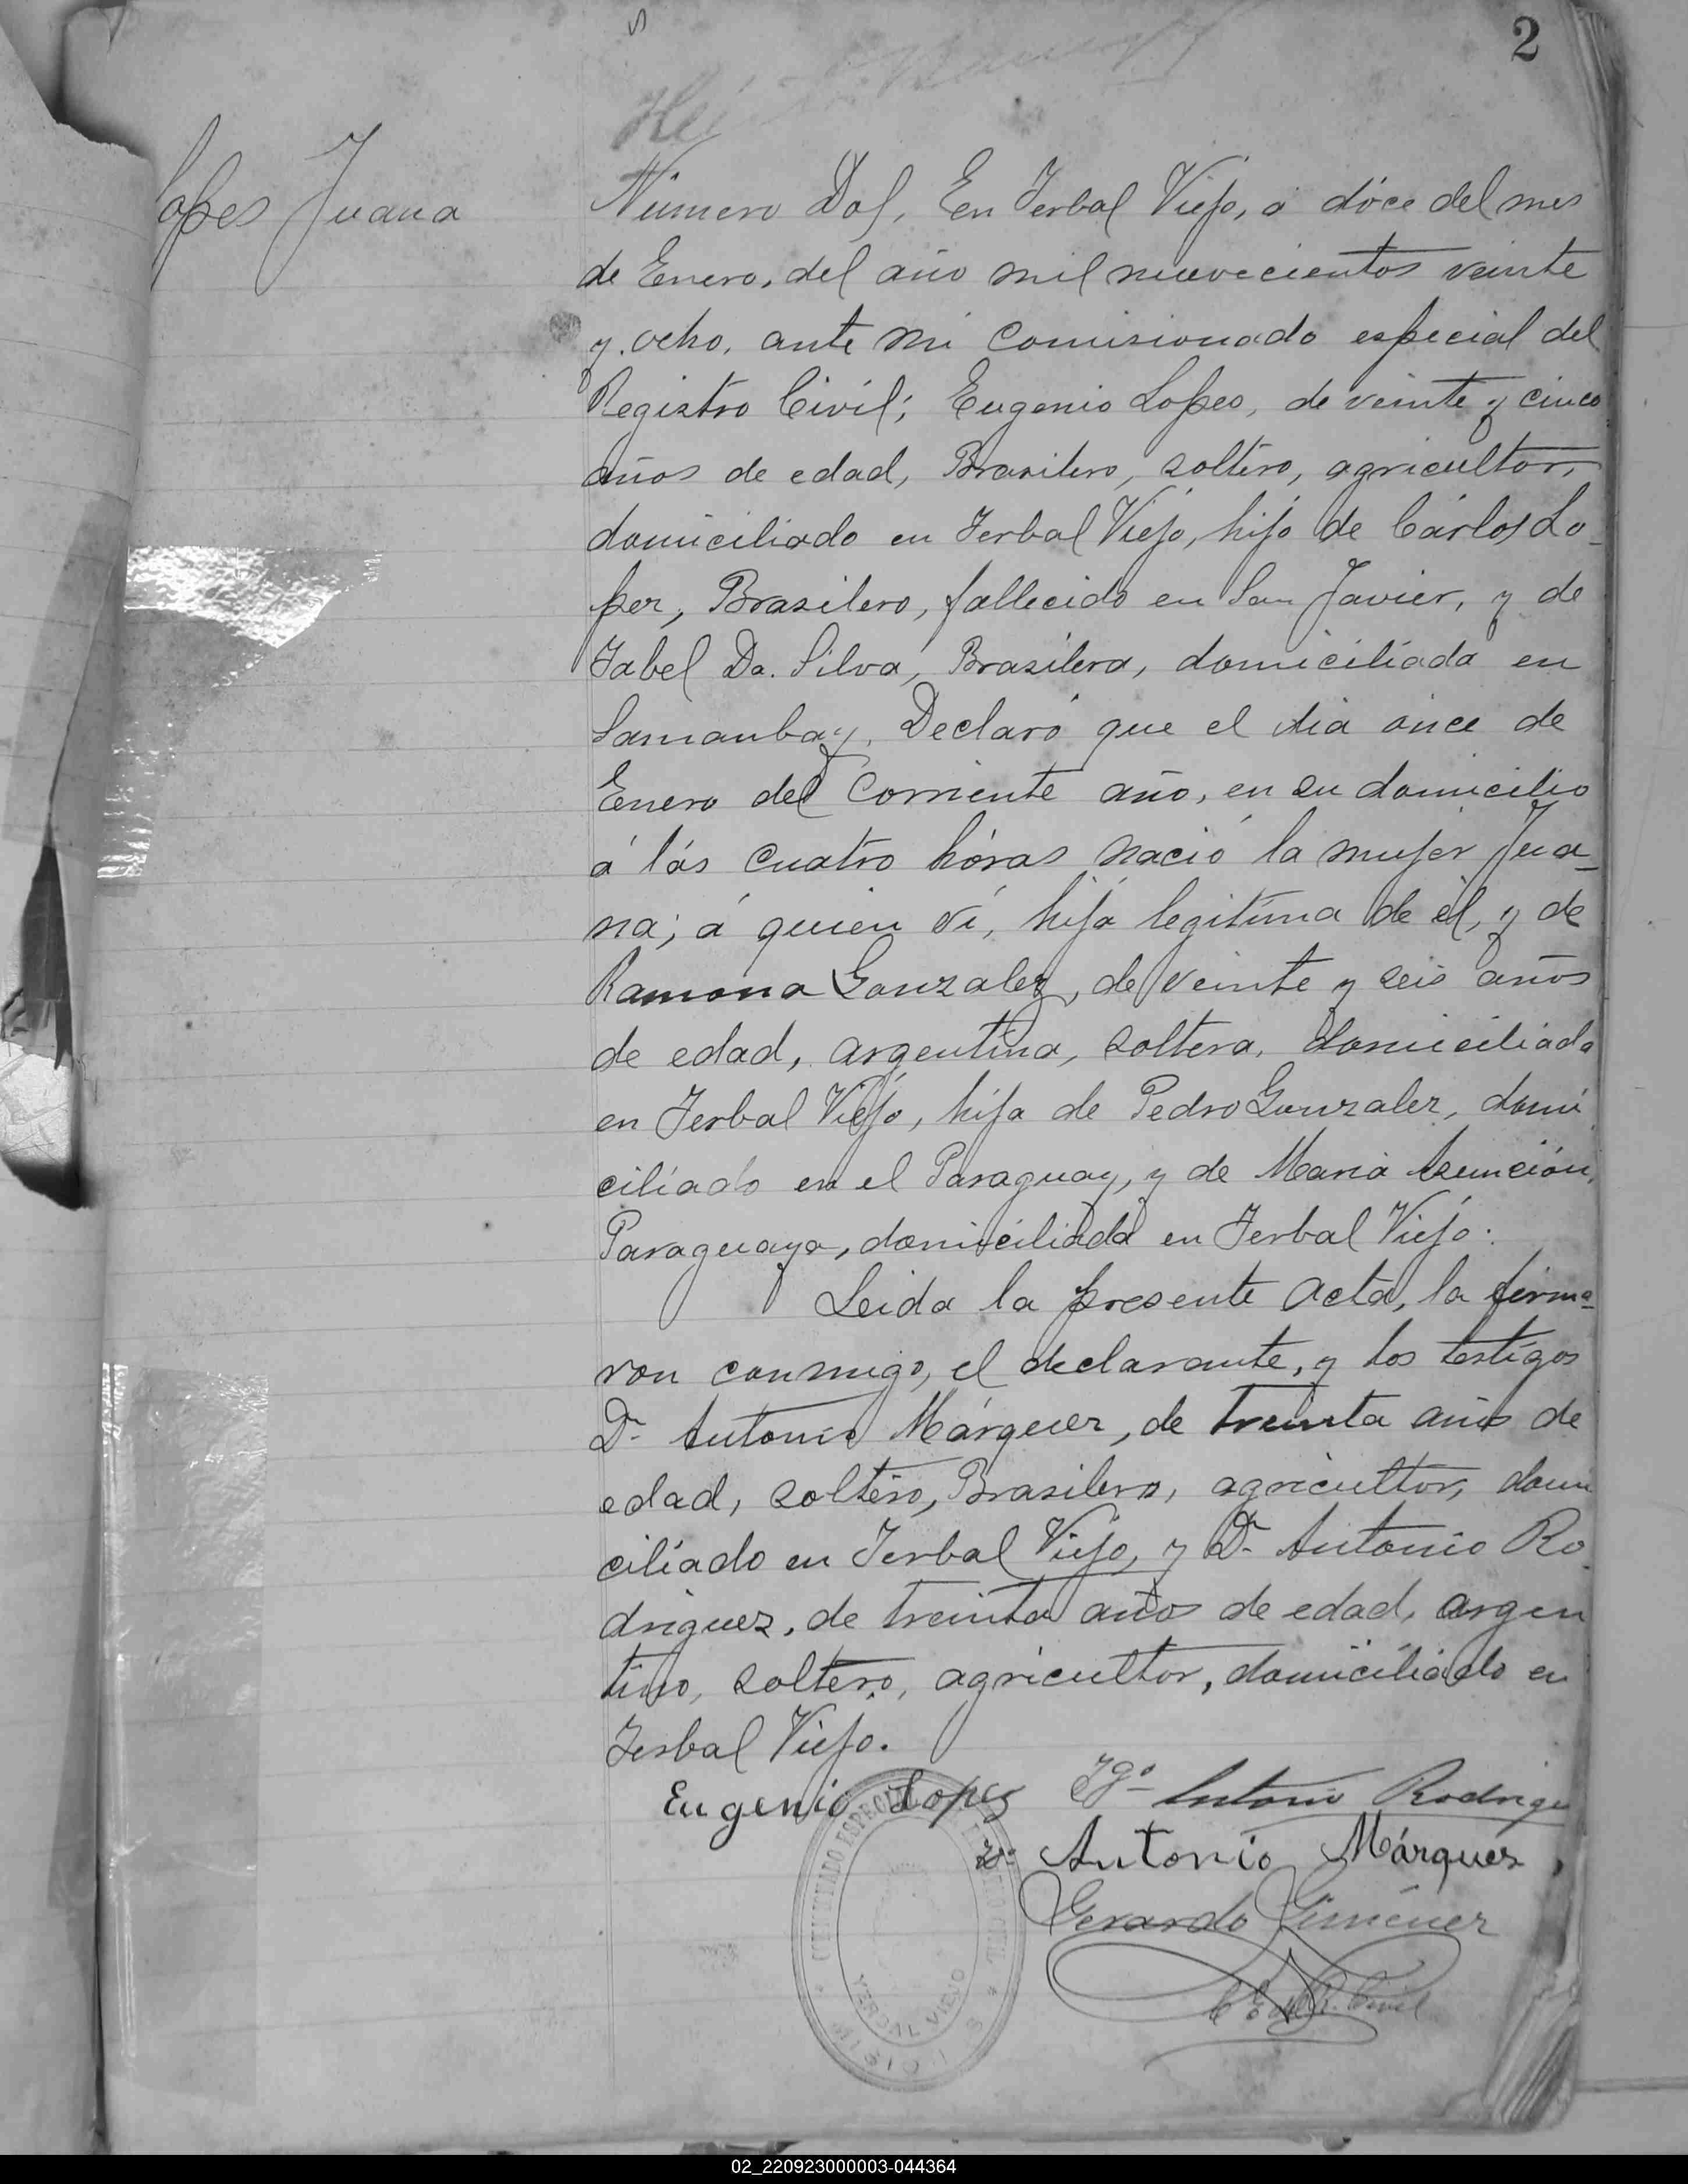 2
Lopes Juana
Número Dos, En Yerbal Viejo, a dóce del mes
de Enero, del año mil nuevecientos veinte
y ocho, ante mi Comisionado especial del
Registro Civil; Eugenio Lopes, de veinte y cinco
años de edad, Brasilero, soltero, agricultor,
domiciliado en Yerbal Viejo, hijo de Cárlos Lo-
pez, Brasilero, fallecido en San Javier, y de
Isabel Da. Silva, Brasilera, domiciliada en
Samanbay, Declaró que el dia ónce de
Enero del Corriente año, en su domicilio
á lás Cuatro hóras nació la mujer Jua-
na; á quien ví, hija legitíma de él, y de
Ramona Gonzalez, de veinte y seis años
de edad, argentina, soltera, domiciliada
en Yerbal Viejo, hija de Pedro Gonzalez, domi
ciliado en el Paraguay, y de Maria Asunción,
Paraguaya, domiciliada en Yerbal Viejo.
Leida la presente Acta, la firma-
ron conmigo, el declarante, y los testigos
Dn Antonio Márquez, de treinta años de
edad, soltero, Brasilero, agricultor, domi
ciliado en Yerbal Viejo, y Dn Antonio Ro
driguez, de treinta años de edad, argen
tino, soltero, agricultor, domiciliado en
Yerbal Viejo.
Eugenio Lopez Tgo Antonio Rodrigu
Tgo Antonio Márques
Gerardo Giménez
C. E. del R. Civil
YERBAL VIEJO
MISIONES
02_220923000003-044364